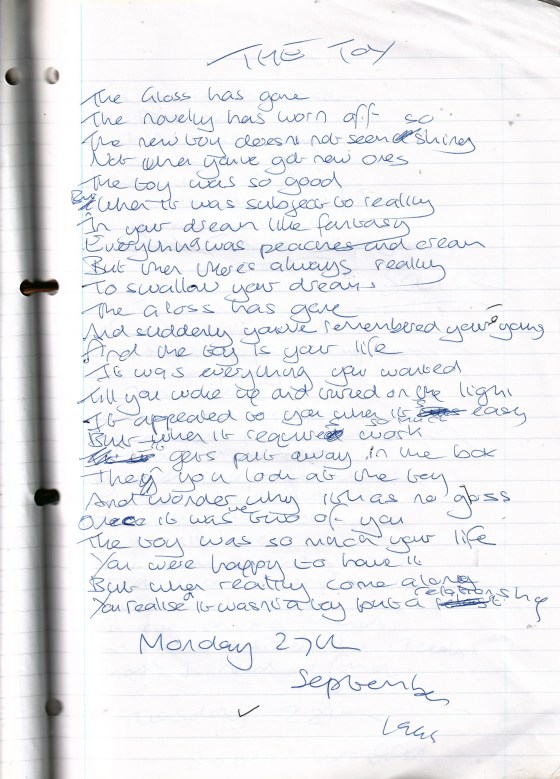 THE TOY
The Gloss has gone
The novelty has worn off so
The new toy doesnt not seem shiney
Not when you've got new ones
The toy was so good
But when it was subject to reality
In your dream like fantasy
Everything was peaches and cream
But then theres always reality
To swallow your dreams
The gloss has gone
And suddenly you've remembered your young
And the toy is your life
It was everything you wanted
Till you woke up and turned on the light
It appealed to you when its easy
But when it requires so much work
it gets put away in the box
Then you look at the toy
And wonder why it has no gloss
Once it was the two of you
The toy was so much your life
You were happy to have it
But when reality come along
You realise it wasn't a toy but a relationship
Monday 27th
September